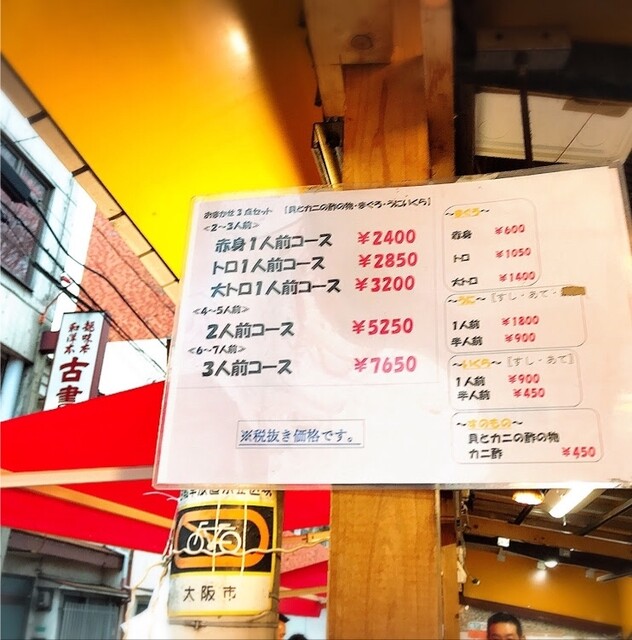 おまかせ3点セット [貝とカニの酢の物・まぐろ・うにいくら]
<2~3人前>
赤身1人前コース ¥2400
トロ1人前コース ¥2850
大トロ1人前コース ¥3200
<4~5人前>
2人前コース ¥5250
<6~7人前>
3人前コース ¥7650
※税抜き価格です。
~まぐろ~
赤身 ¥600
トロ ¥1050
大トロ ¥1400
~うに~ [すし・あて・
1人前 ¥1800
半人前 ¥900
~いくら~ [すし・あて]
1人前 ¥900
半人前 ¥450
~すのもの~
貝とカニの酢の物
カニ酢 ¥450
和洋本
古書
大阪市